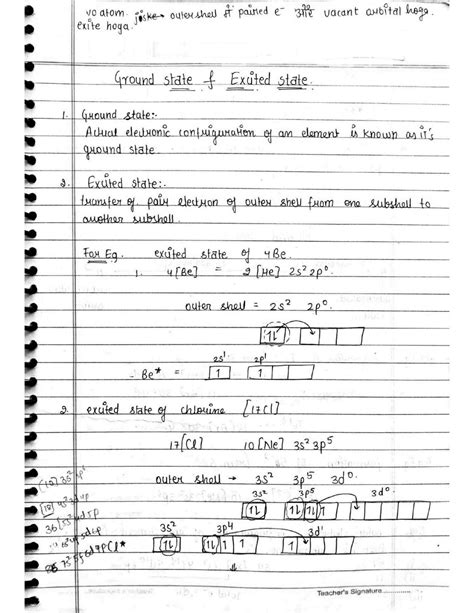 vo atom. jiske → outer shell में paired e⁻ और vacant orbital hoga.
exite hoga.
Ground state & Exited state.
1. Ground state:-
Actual electronic configuration of an element is known as it's
ground state.
2. Exited state:-
transfer of pair electron of outer shell from one subshell to
another subshell.
For Eg. exited state of 4Be.
1. 4[Be] = 2[He] 2s² 2p⁰
outer shell = 2s² 2p⁰
1↓
2s¹ 2p¹
- Be* = 1 1
2. exited state of chlorine [17Cl]
17[Cl] 10[Ne] 3s² 3p⁵
outer shell → 3s² 3p⁵ 3d⁰
3s² 3p⁵ 3d⁰
1↓ 1↓ 1↓ 1
3s² 3p⁴ 3d¹
Cl* 1↓ 1↓ 1 1 1
Teacher's Signature